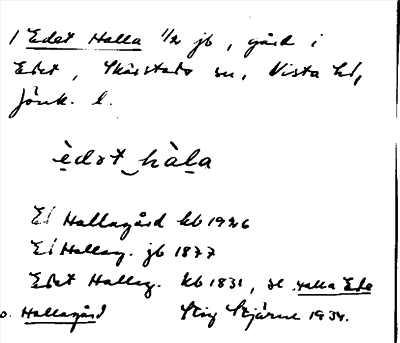 / Edet Halla 1/2 jb, gård i
Edet, Skärstads sn, Vista hd,
Jönk. l.
ѐdət‿hàla
Ed Hallagård kb 1926
Ed Hallag. jb 1877
Edet Hallag. kb 1831, se Halla Ede
o. Hallagård Stig Stjärne 1934.